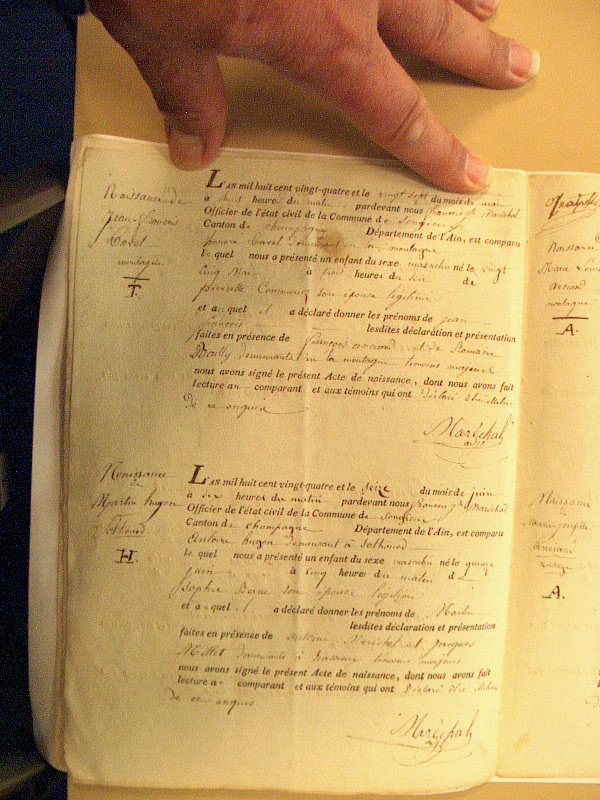 Naissance de
Jean françois
montagne
T.
L'AN mil huit cent vingt-quatre et le vingt sept du mois de mai
à heures du matin pardevant nous françois Maréchal
Officier de l'état civil de la Commune de Songieu
Canton de champagne Département de l'Ain, est comparu
pierre demeurant en la montagne
le quel nous a présenté un enfant du sexe masculin né le vingt
cinq mai à trois heures du soir de
pierrette son épouse légitime
et au quel il a déclaré donner les prénoms de jean
françois lesdites déclaration et présentation
faites en présence de françois anciand et de Romain
demeurants en la montagne temoins majeurs
nous avons signé le présent Acte de naissance, dont nous avons fait
lecture au comparant et aux témoins qui ont déclaré être illitéré
de ce enquis
Maréchal
Naissance
de
Martin hugon
Sothonod
H.
L'AN mil huit cent vingt-quatre et le seize du mois de juin
à six heures du matin pardevant nous Maréchal
Officier de l'état civil de la Commune de Songieu
Canton de champagne Département de l'Ain, est comparu
hugon demeurant à Sothonod
le quel nous a présenté un enfant du sexe masculin né le quinze
juin à cinq heures du matin de
Sophie Berne son épouse légitime
et au quel il a déclaré donner les prénoms de Martin
lesdites déclaration et présentation
faites en présence de antoine Maréchal et jacques
Millet demeurants à temoins majeurs
nous avons signé le présent Acte de naissance, dont nous avons fait
lecture au comparant et aux témoins qui ont déclaré être illitéré
de ce enquis
Maréchal
Naissance
Marie
anciand
montagne
A.
Naissance
Marie josephte
anciand
montagne
A.